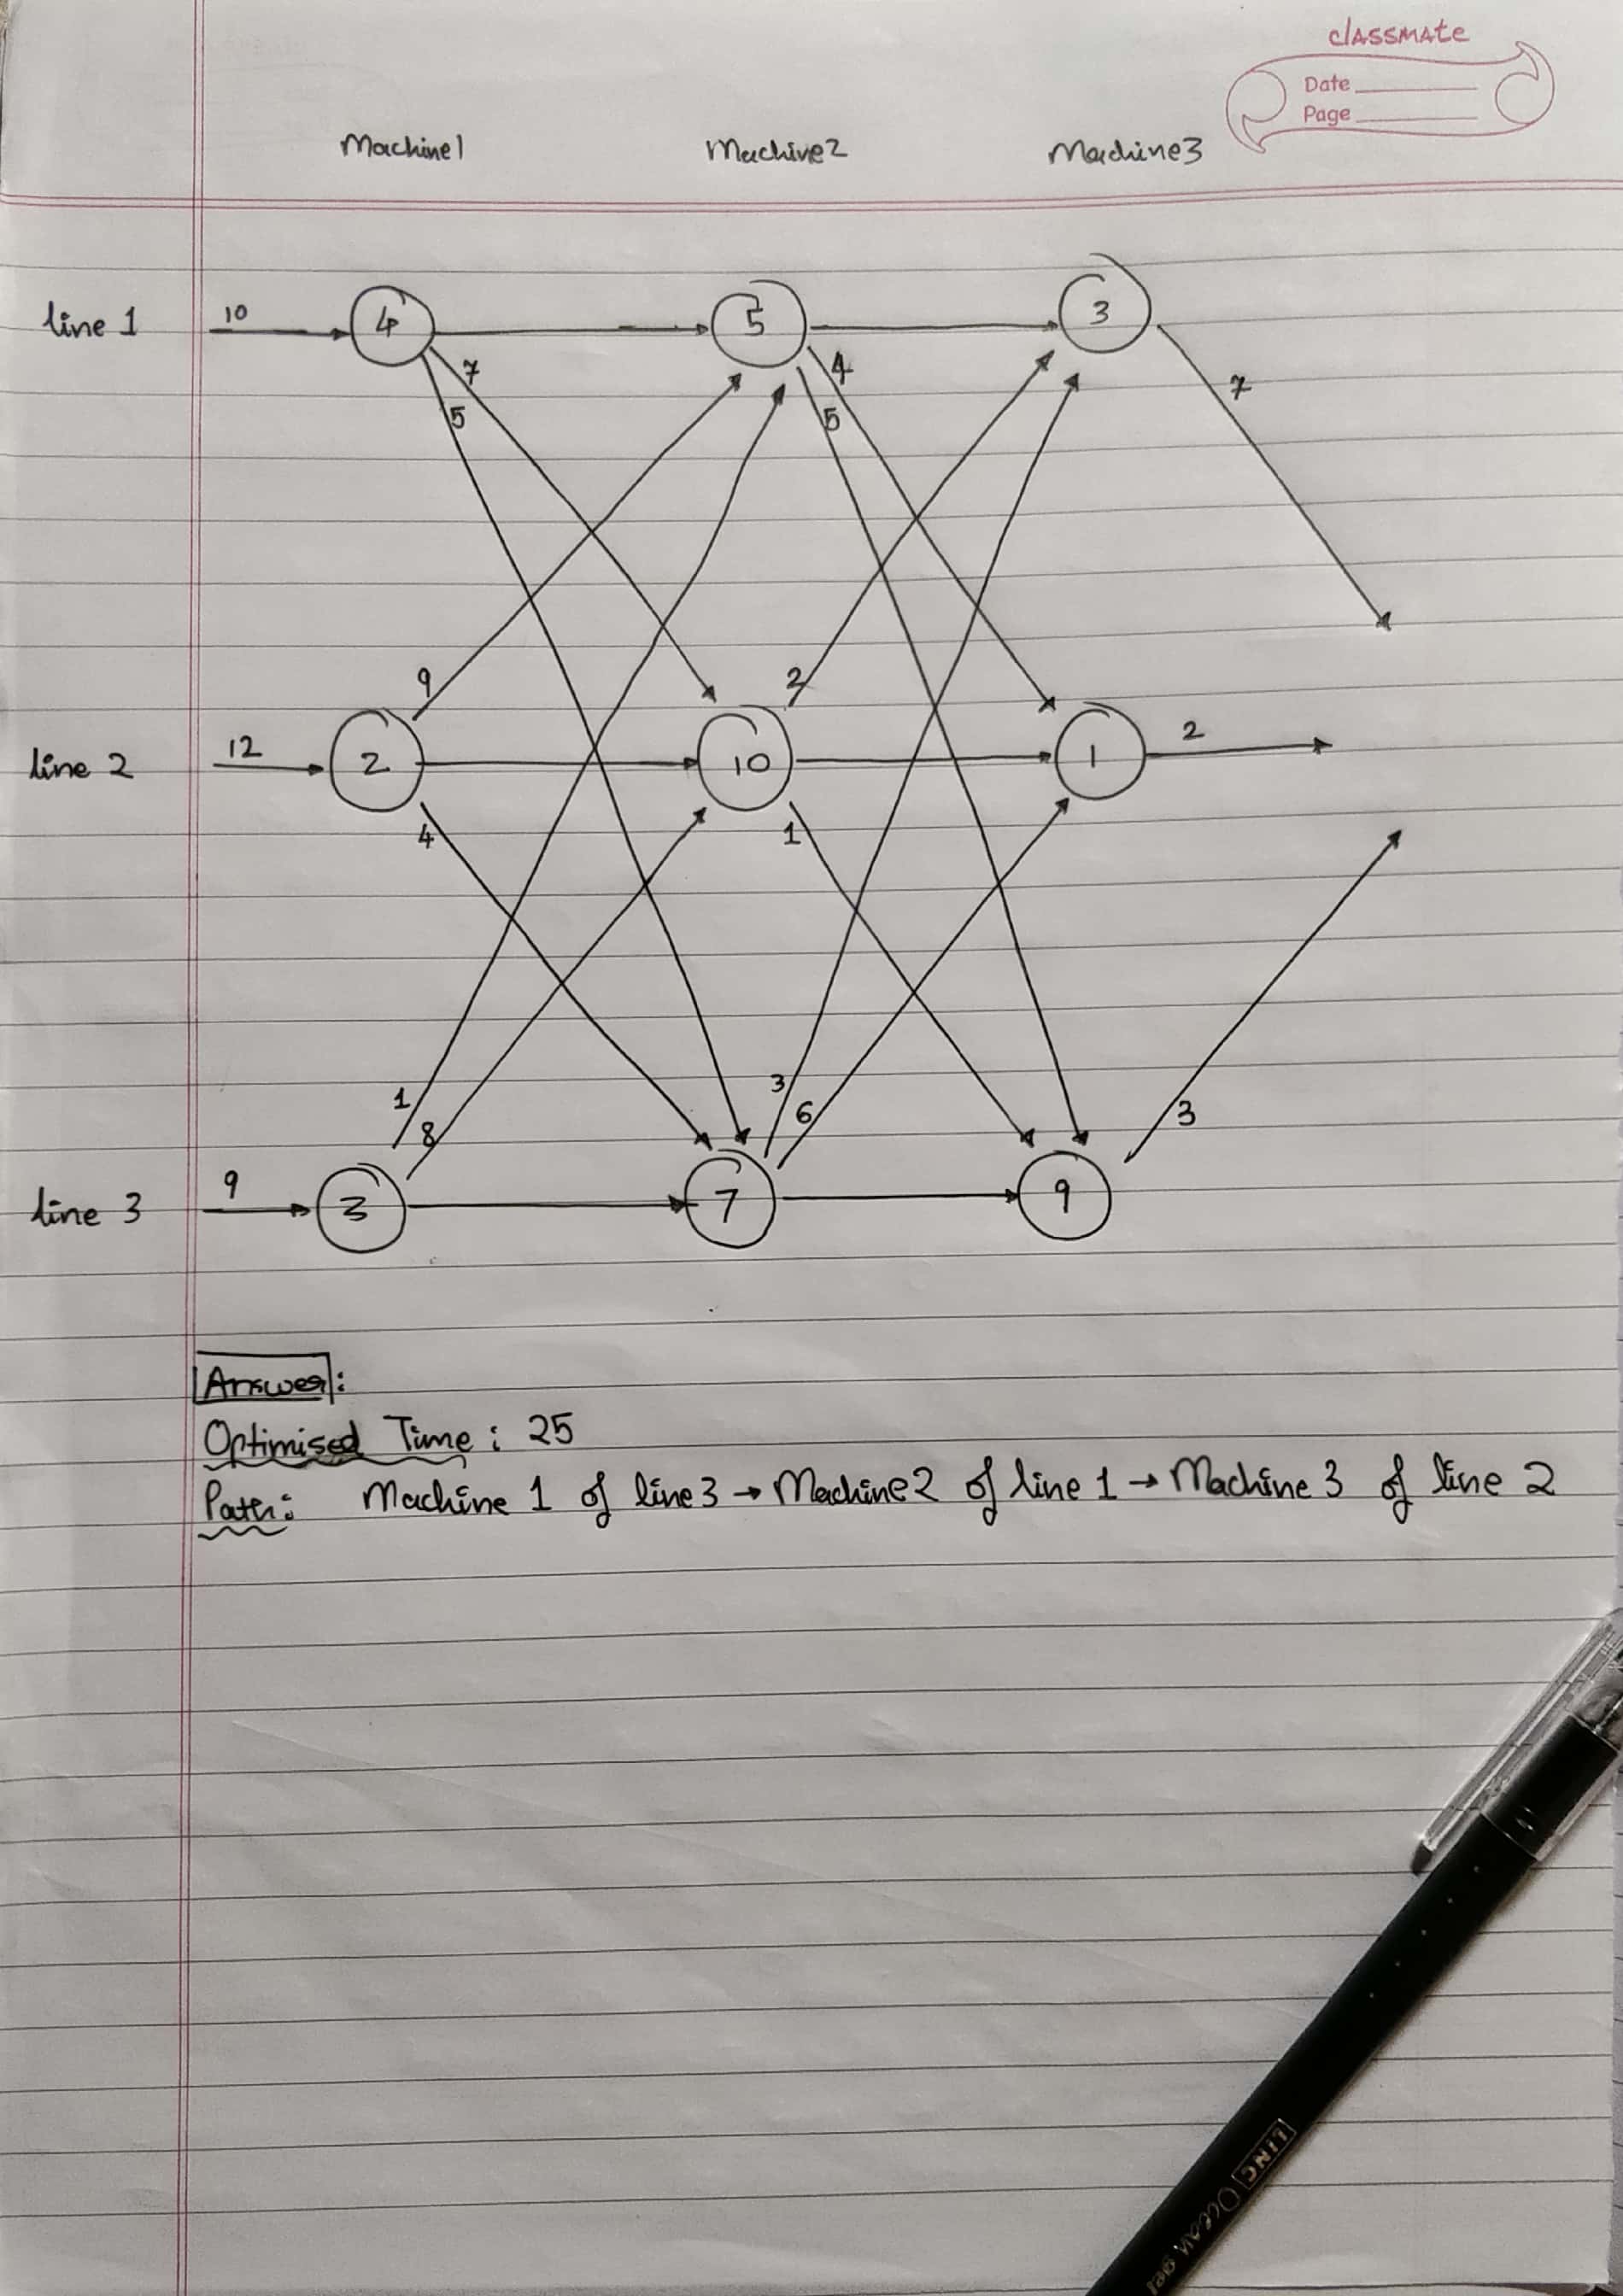 classmate
Date
Page
Machine1 Machine2 Machine3
line 1 10 4 5 3
7 4 7
5 5
9 2
line 2 12 2 10 1 2
4 1
1 3 3
8 6
line 3 9 3 7 9
Answer:
Optimised Time: 25
Path: Machine 1 of line 3 → Machine 2 of line 1 → Machine 3 of line 2
LINC Ocean gel